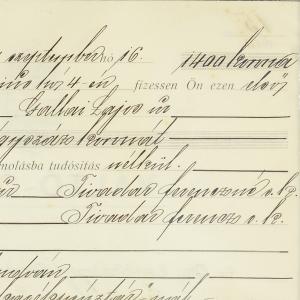 szeptember hó 16. 1400 korona
hó 4-én fizessen Ön ezen első
Gallai Lajos úr
négyszáz koronát
molásba tudósítás nélkül.
úr Tivadar Ferenczné s. k.
Tivadar Ferencz s. k.